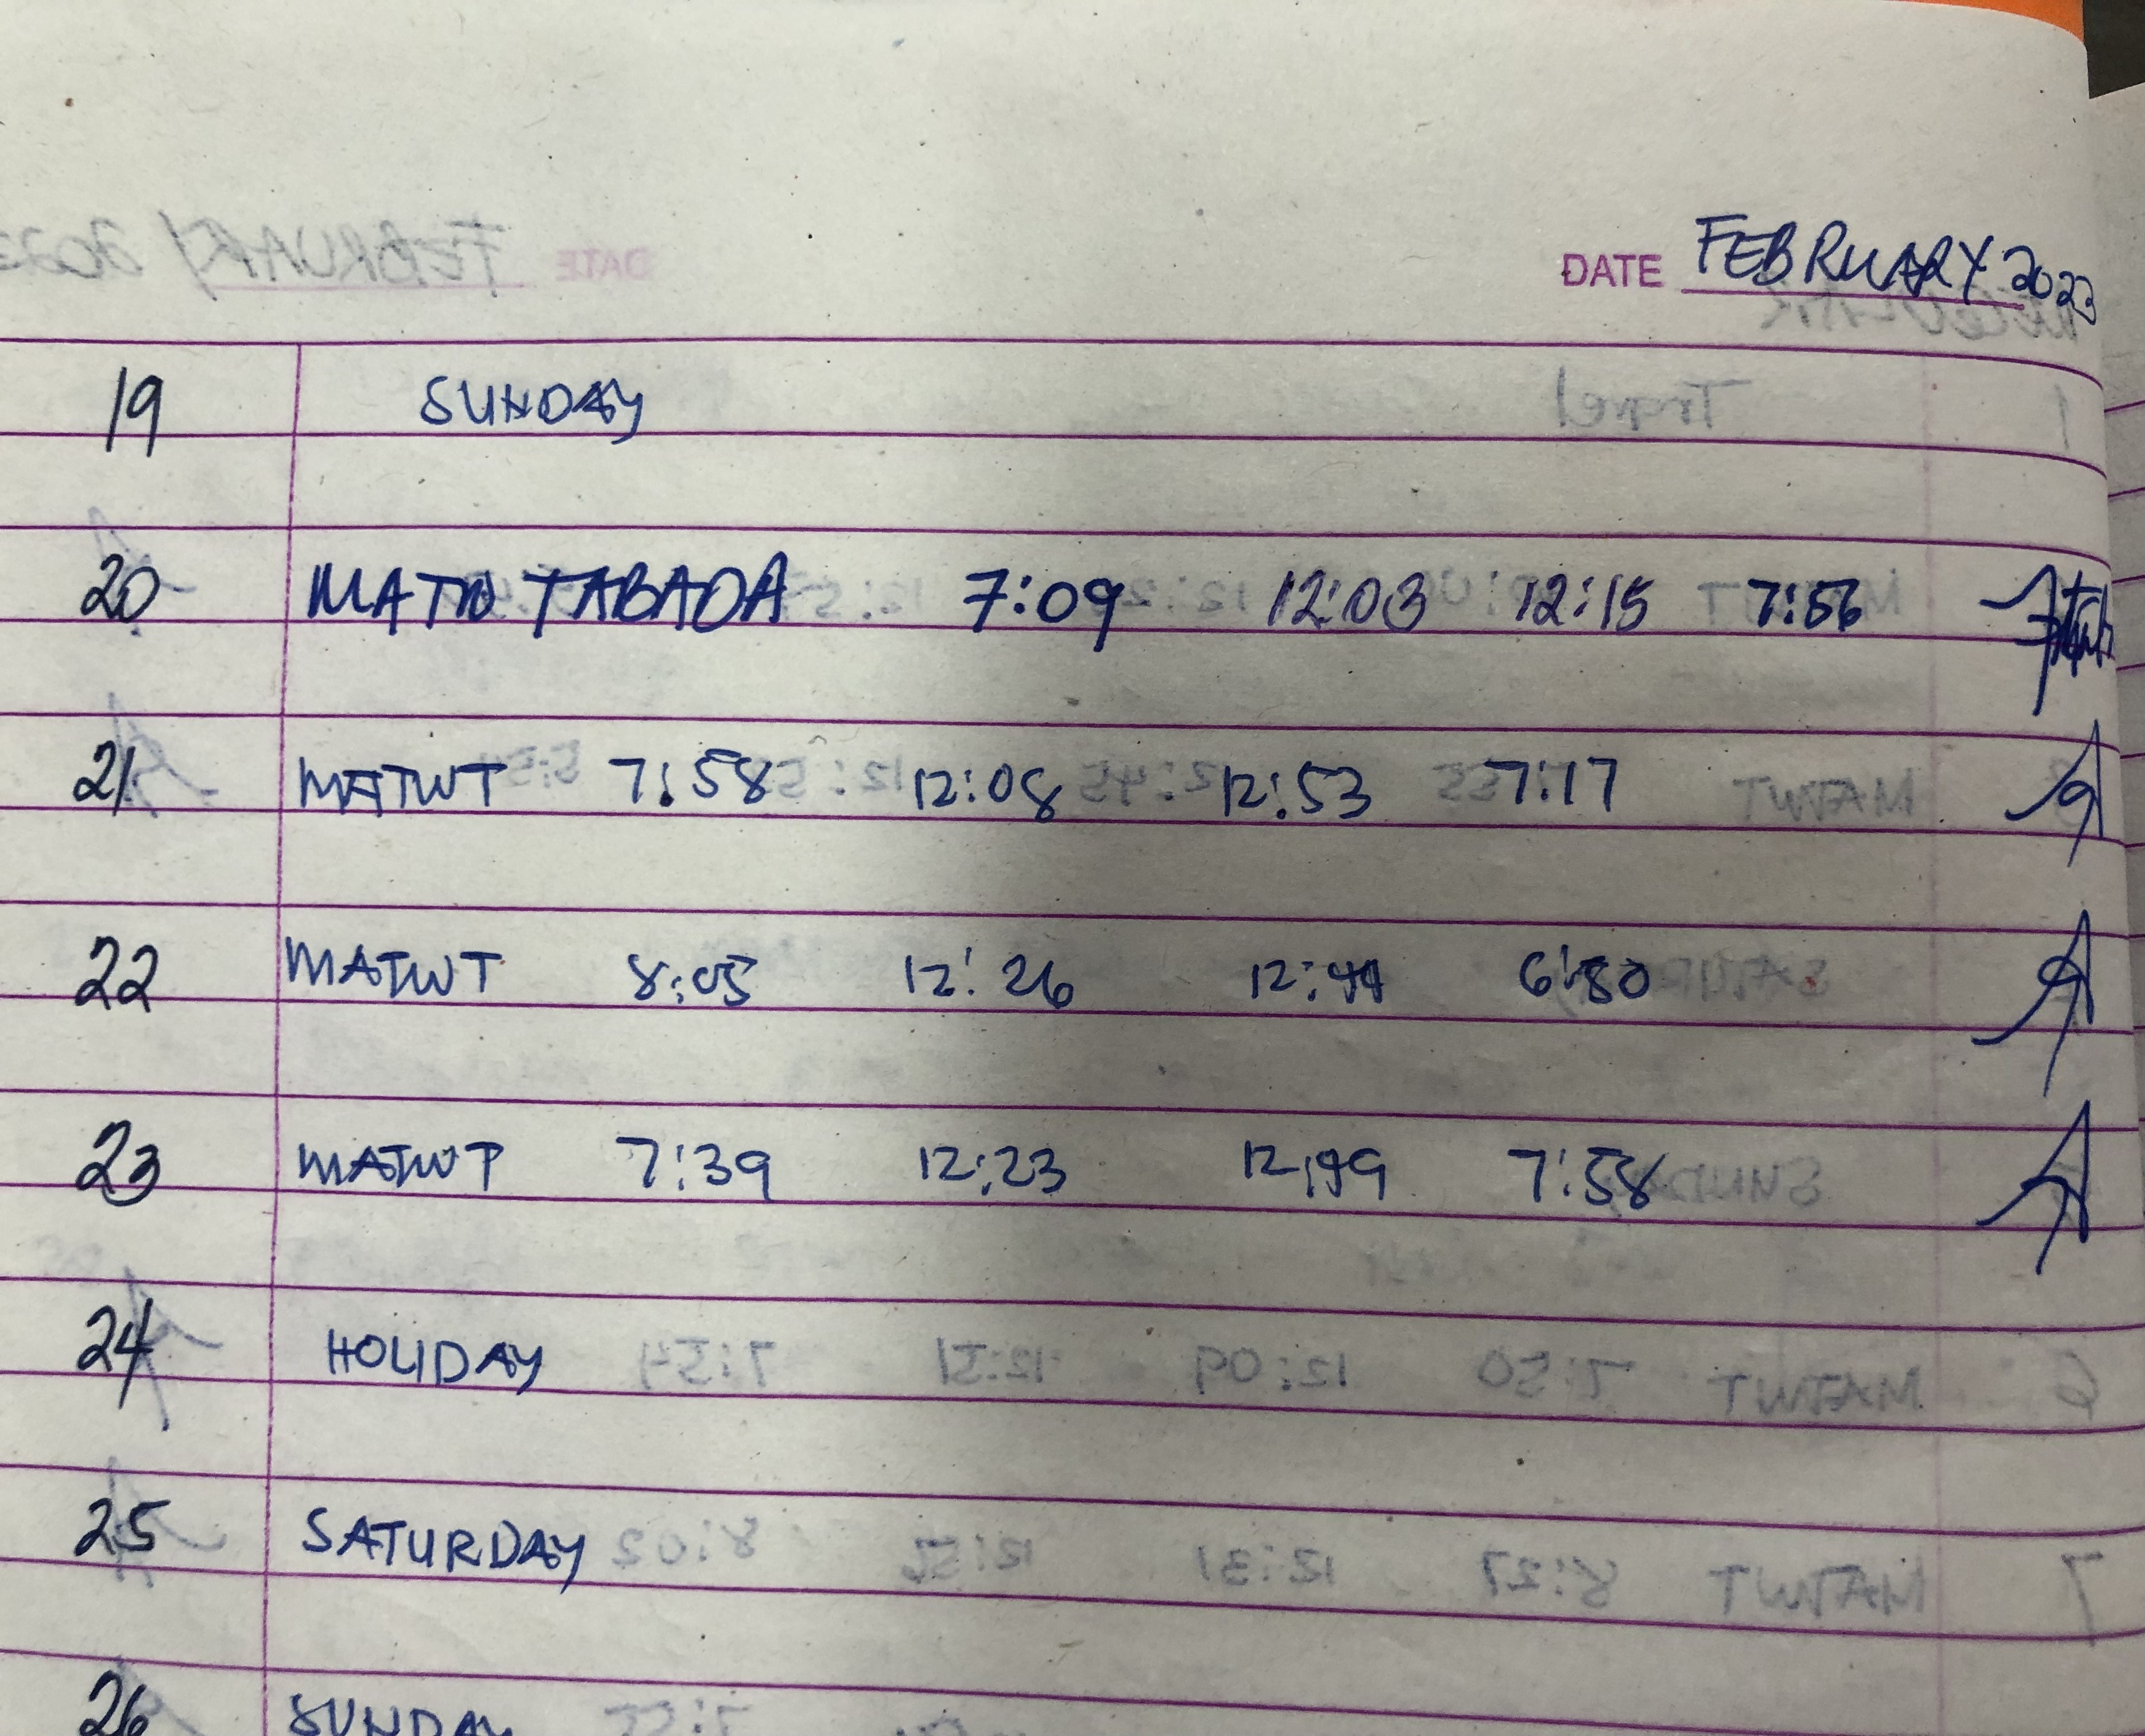 DATE FEBRUARY 2023
19 SUNDAY
20 TABADA 7:09 12:03 12:15 7:56
21 MATWT 7:58 12:08 12:53 7:17
22 MATWT 8:05 12:26 12:44
23 MATWT 7:39 12:23 12:49 7:58
24 HOLIDAY
25 SATURDAY
26 SUNDAY